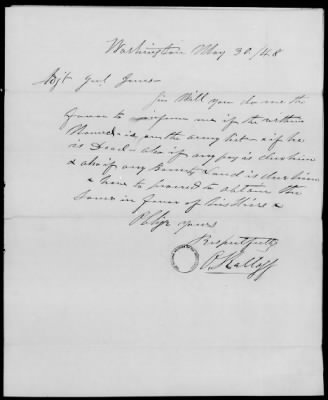 Washington May 30/48
Adjt Genl Jones
Sir Will you do me the
favor to inform me if the within
Named is on the army list & if he
is Dead & also if any pay is due him
& also if any Bounty Land is due him
& how to proceed to obtain the
Same in favor of his Heirs &
Oblige yours
Respectfully